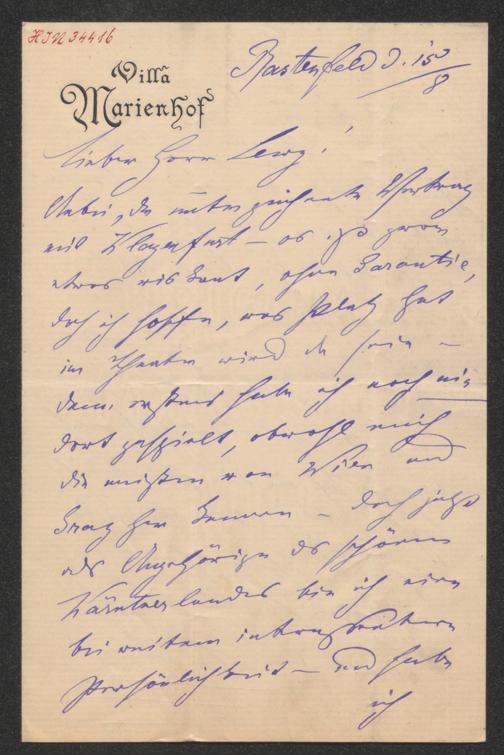 HIN 34416
Villa
Marienhof
Rastenfeld d. 15/8
Lieber Herr Lewy!
Anbei, der unterzeichnete Vertrag
mit Klagenfurt – es ist zwar
etwas riskant, ohne Garantie,
doch ich hoffe, was Platz hat
im Theater wird da sein –
denn erstens habe ich noch nie
dort gespielt, obwohl mich
die meisten von Wien und
Graz her kennen – doch jetzt
als Angehörige des schönen
Kärntnerlandes bin ich eine
bei weitem interessantere
Persönlichkeit – und habe
ich